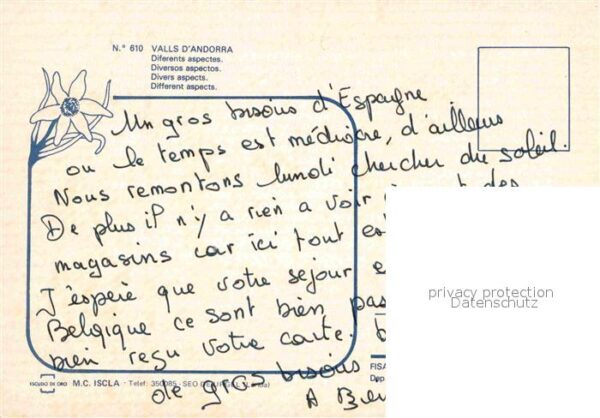 N.° 610 VALLS D'ANDORRA
Diferents aspectes.
Diversos aspectos.
Divers aspects.
Different aspects.
Un gros bisous d'Espagne
ou le temps est médiocre, d'ailleurs
Nous remontons lundi chercher du soleil.
De plus il n'y a rien a voir des
magasins car ici tout est
J'espère que votre sejour e
Belgique ce sont bien pas
bien reçu votre carte.
de gros bisous
A Bien
privacy protection
Datenschutz
FISA
Dep
ESCUDO DE ORO M.C. ISCLA - Telef: 350085 - SEO DE URGEL